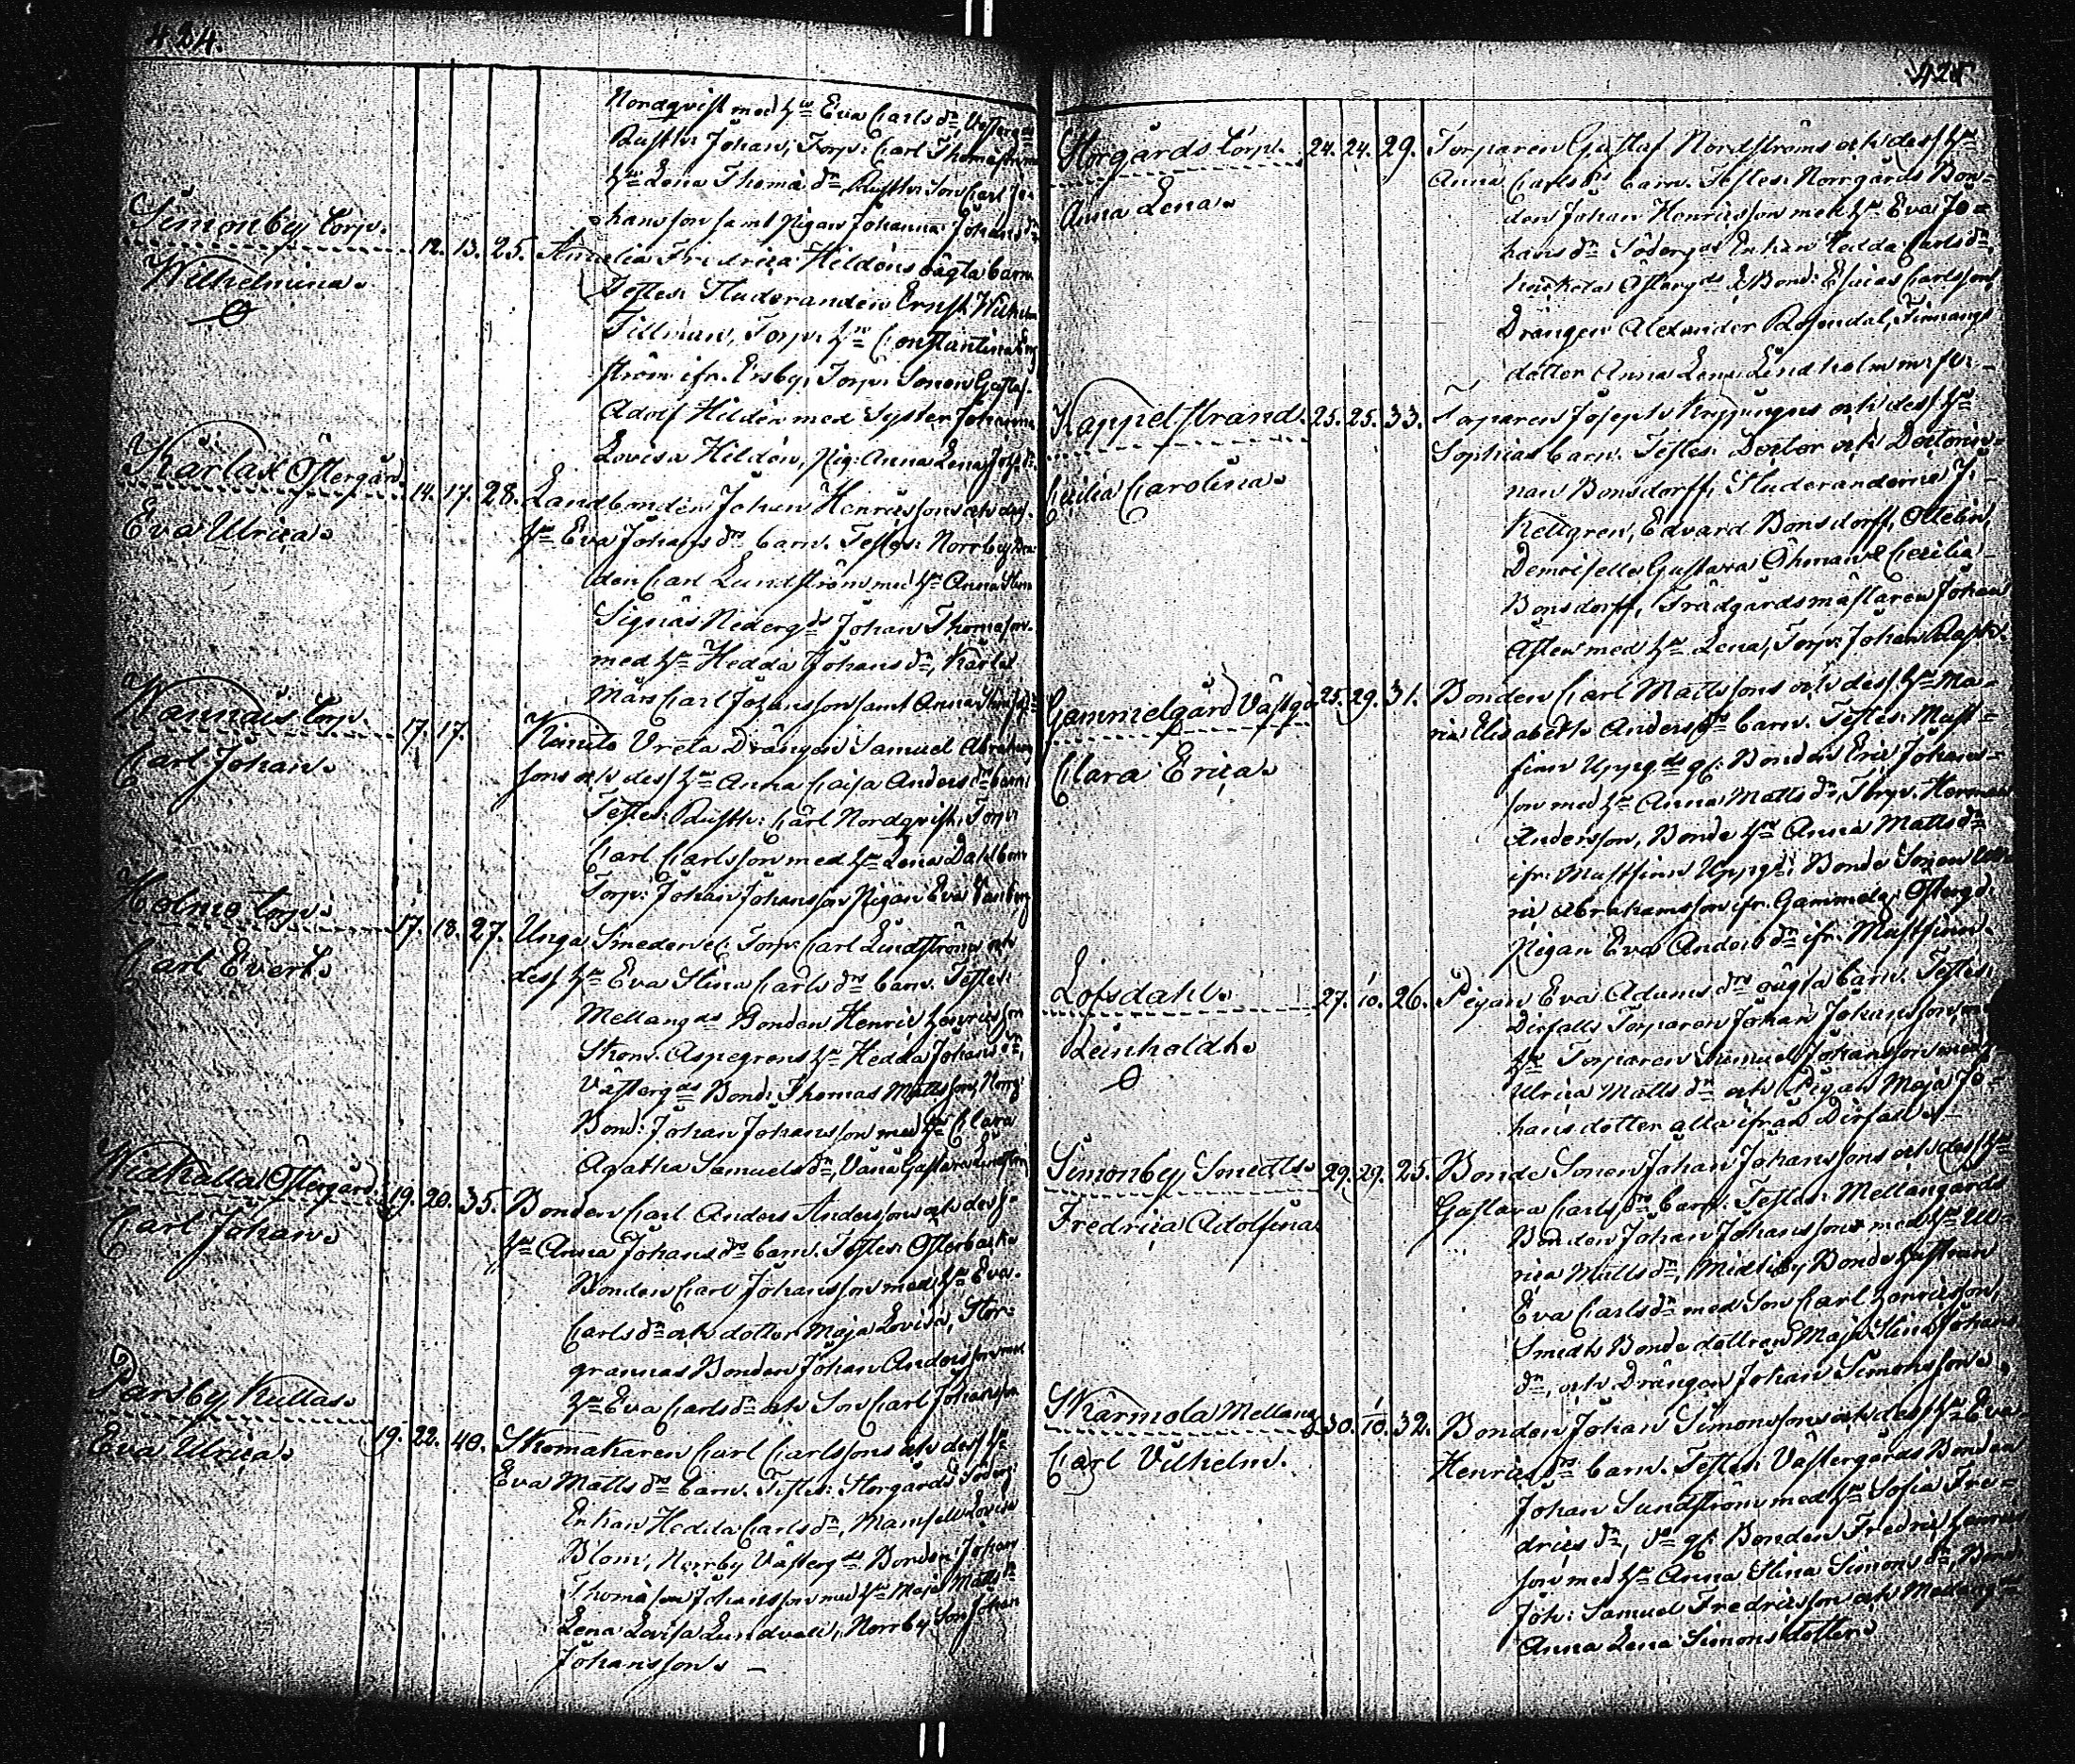 424.
Nordqvist med h. Eva Carls dr, Västergds
Rusth: Johan, Torp: Carl Thomasson
hu Lena Thomæ dr, Rusth: Son Carl Jo-
hansson samt Pigan Johanna Johans dr
Simonby torp.
Wilhelmina. 12. 13. 25. Amalia Fridrica Hildéns oägta barn
Testes: Studeranden Ernst Wilhelm
Tillman, Torp: hu Constantina
ström ifr. Ersby, Torp: Sonen Gustaf
Adolf Hildén med Syster Johanna
Lovisa Hildén, Pig: Anna Lena
Kårlax Östergård
Eva Ulrica. 14. 17. 28. Landbonden Johan Henricssons och dess
hu Eva Johans drs barn. Testes: Norrby Bon-
den Carl Lundström med hu Anna Stina
Signäs Nedergds Johan Thomasson
med hu Hedda Johans dr, Kårlax
Mårs Carl Johansson samt Anna Stina
Wannäis torp.
Carl Johan. 17. 17. Kimito Vreta Drängen Samuel Abrahams
sons och dess hu Anna Caisa Anders drs barn
Testes: Rusth: Carl Nordqvist, Torp:
Carl Carlsson med hu Lena Dahlbom
Torp: Johan Johansson Pigan Eva
Holmo torp.
Carl Evert. 17. 18. 27. Unga Smeden el. Torp: Carl Lindströms och
dess hu Eva Stina Carls drs barn. Testes:
Mellangds Bonden Henric Henricsson
Skom: Aspegrens hu Hedda Johans dr,
Västergds Bond: Thomas Mattsson, Norrg:
Bond: Johan Johansson med hu Clara
Agatha Samuels dr, Gustava
Widkalla Östergård
Carl Johan. 19. 20. 35. Bonden Carl Anders Anderssons och dess
hu Anna Johans drs barn. Testes: Österbacka
Bonden Carl Johansson med hu Eva
Carls dr och dotter Maja Lovisa, Stor-
grannas Bonden Johan Andersson med
hu Eva Carls dr och Son Carl Johansson
Parsby Kullas.
Eva Ulrica. 19. 22. 40. Skomakaren Carl Carlssons och dess hu
Eva Matts drs barn. Testes: Storgårds Söderg:
Enkan Hedda Carls dr, Mamsell Lovisa
Blom, Norrby Västergds Bonden Johan
Thomasson Johansson med hu Maja Matts dr
Lena Lovisa Lundvall, Norrby Son Johan
Johansson. –
425
Storgårds torp.
Anna Lena. 24. 24. 29. Torparen Gustaf Nordströms och dess hu
Anna Carls drs barn. Testes: Norrgårds Bon-
den Johan Henricsson med hu Eva Jo-
hans dr Södergds Enkan Hedda Carls dr,
Östergds Bond: Esaias Carlsson,
Drängen Alexander Rosendal,
dotter Anna Lena Lindholm m: fl: –
Kappelstrand.
Cecilia Carolina. 25. 25. 33. Torparen Joseph och dess hu
Sophias barn. Testes: Doctor och Doctorin-
nan Bonsdorff, Studeranderne
Kellgren, Edvard Bonsdorff,
Demoiselle Gustava Öhman & Cecilia
Bonsdorff, Trädgårdsmästaren Johan
med hu Lena, Torp: Johan
Gammelgård Västgd
Clara Erica. 25. 29. 31. Bonden Carl Mattssons och dess hu Ma-
ria Elisabeth Anders drs barn. Testes: Must-
finn Uppgds gf: Bonden Eric Johans-
son med hu Anna Matts dr, Torp: Herman
Andersson, Bonde hu Anna Matts dr
ifr: Mustfinn Uppgd: Bonde Sonen
ric Abrahamsson ifr. Gammelg: Östergd:
Pigan Eva Anders dr ifr. Mustfinn.
Lofsdahl.
Reinholdh. 27. 1/10. 26. Pigan Eva Adams drs oägta barn. Testes:
Dirfalls Torparen Johan Johansson med
hu Torparen Samuel Johansson med
Ulrica Matts dr och Pigan Maja Jo-
hans dotter alla ifrån Dirfall. –
Simonby Smedts.
Fredrica Adolfina. 29. 29. 25. Bonde Sonen Johan Johanssons och dess hu
Gustava Carls drs barn. Testes: Mellangårds
Bonden Johan Johansson med hu Ul-
rica Matts dr, Midtiby Bonde hustrun
Eva Carls dr med Son Carl Henricsson,
Smedts Bonde dottren Maja Stina Johans
dr, och Drängen Johan Simonsson.
Skärmola Mellang
Carl Vilhelm. 30. 1/10. 32. Bonden Johan Simonssons och dess hu Eva
Henrics drs barn. Testes: Västergårds Bonden
Johan Sundström med hu Sofia Fre-
drics dr, Do gf: Bonden Fredric Henrics
son med hu Anna Stina Simons dr, Bond:
Joh: Samuel Fredricsson och Mellangds
Anna Lena Simons dotter.